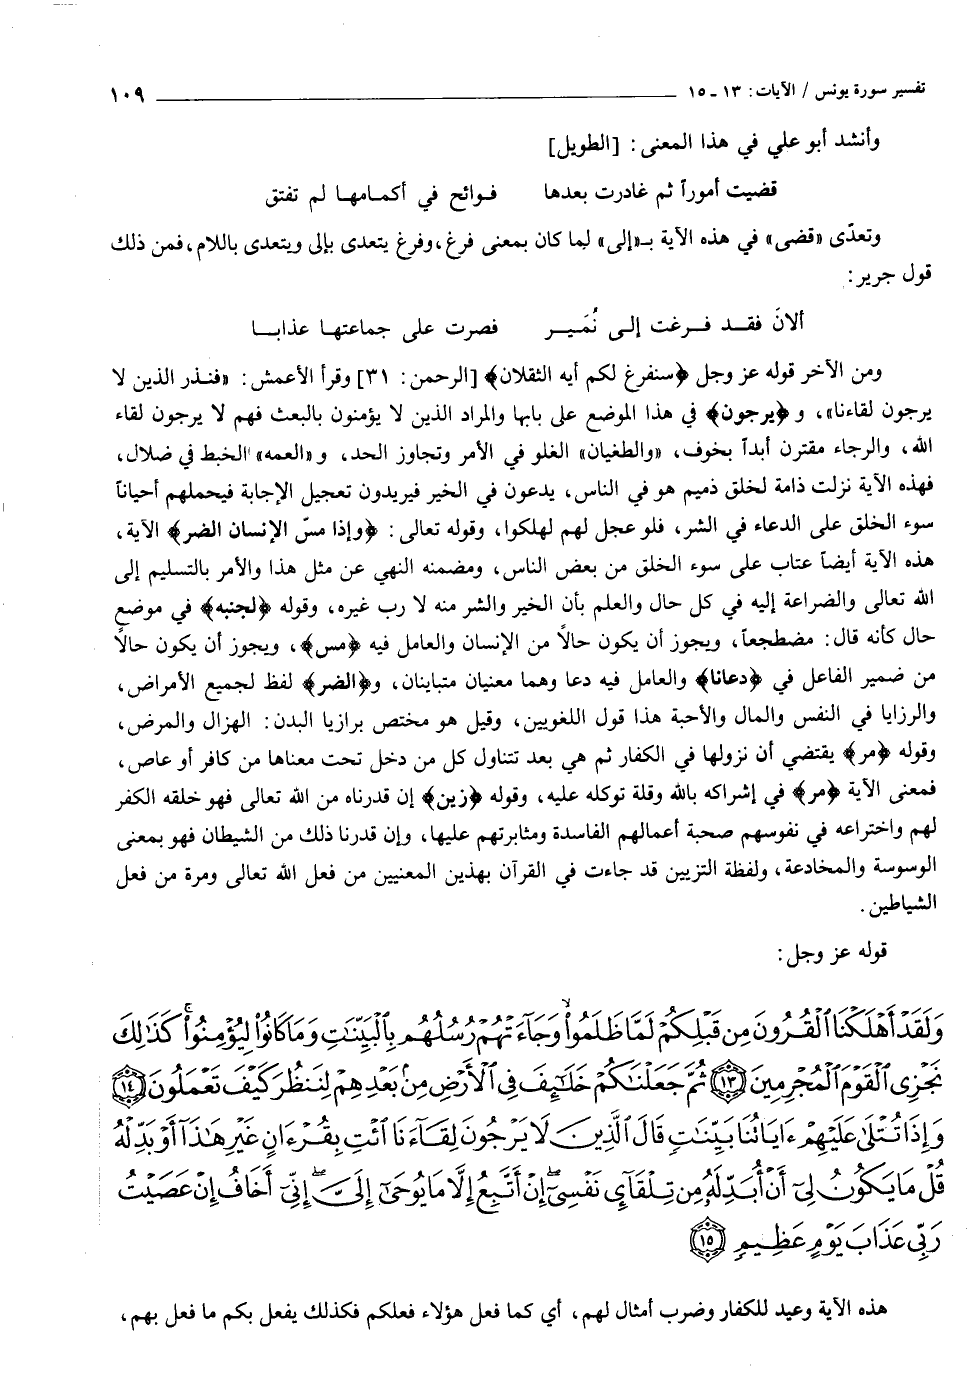 تفسير سورة يونس / الآيات: ١٣ ـ ١٥ ١٠٩
وأنشد أبو علي في هذا المعنى: [الطويل]
قضيت أموراً ثم غادرت بعدها فوائح في أكمامها لم تفتق
وتعدّى «قضى» في هذه الآية بـ«إلى» لما كان بمعنى فرغ، وفرغ يتعدى بإلى ويتعدى باللام، فمن ذلك
قول جرير:
ألانَ فقد فرغت إلى نُمَير فصرت على جماعتها عذابا
ومن الآخر قوله عز وجل ﴿سنفرغ لكم أيه الثقلان﴾ [الرحمن: ٣١] وقرأ الأعمش: «فنذر الذين لا
يرجون لقاءنا»، و ﴿يرجون﴾ في هذا الموضع على بابها والمراد الذين لا يؤمنون بالبعث فهم لا يرجون لقاء
الله، والرجاء مقترن أبداً بخوف، «والطغيان» الغلو في الأمر وتجاوز الحد، و«العمه» الخبط في ضلال،
فهذه الآية نزلت ذامة لخلق ذميم هو في الناس، يدعون في الخير فيريدون تعجيل الإجابة فيحملهم أحياناً
سوء الخلق على الدعاء في الشر، فلو عجل لهم لهلكوا، وقوله تعالى: ﴿وإذا مسّ الإنسان الضر﴾ الآية،
هذه الآية أيضاً عتاب على سوء الخلق من بعض الناس، ومضمنه النهي عن مثل هذا والأمر بالتسليم إلى
الله تعالى والضراعة إليه في كل حال والعلم بأن الخير والشر منه لا رب غيره، وقوله ﴿لجنبه﴾ في موضع
حال كأنه قال: مضطجعاً، ويجوز أن يكون حالاً من الإنسان والعامل فيه ﴿مس﴾، ويجوز أن يكون حالاً
من ضمير الفاعل في ﴿دعانا﴾ والعامل فيه دعا وهما معنيان متباينان، و﴿الضر﴾ لفظ لجميع الأمراض،
والرزايا في النفس والمال والأحبة هذا قول اللغويين، وقيل هو مختص برزايا البدن: الهزال والمرض،
وقوله ﴿مر﴾ يقتضي أن نزولها في الكفار ثم هي بعد تتناول كل من دخل تحت معناها من كافر أو عاص،
فمعنى الآية ﴿مر﴾ في إشراكه بالله وقلة توكله عليه، وقوله ﴿زين﴾ إن قدرناه من الله تعالى فهو خلقه الكفر
لهم واختراعه في نفوسهم صحبة أعمالهم الفاسدة ومثابرتهم عليها، وإن قدرنا ذلك من الشيطان فهو بمعنى
الوسوسة والمخادعة، ولفظة التزيين قد جاءت في القرآن بهذين المعنيين من فعل الله تعالى ومرة من فعل
الشياطين.
قوله عز وجل:
وَلَقَدْ أَهْلَكْنَا ٱلْقُرُونَ مِن قَبْلِكُمْ لَمَّا ظَلَمُوا۟ وَجَآءَتْهُمْ رُسُلُهُم بِٱلْبَيِّنَٰتِ وَمَا كَانُوا۟ لِيُؤْمِنُوا۟ كَذَٰلِكَ
نَجْزِى ٱلْقَوْمَ ٱلْمُجْرِمِينَ ١٣ ثُمَّ جَعَلْنَٰكُمْ خَلَٰٓئِفَ فِى ٱلْأَرْضِ مِنۢ بَعْدِهِمْ لِنَنظُرَ كَيْفَ تَعْمَلُونَ ١٤
وَإِذَا تُتْلَىٰ عَلَيْهِمْ ءَايَاتُنَا بَيِّنَٰتٍ قَالَ ٱلَّذِينَ لَا يَرْجُونَ لِقَآءَنَا ٱئْتِ بِقُرْءَانٍ غَيْرِ هَٰذَآ أَوْ بَدِّلْهُ
قُلْ مَا يَكُونُ لِىٓ أَنْ أُبَدِّلَهُۥ مِن تِلْقَآئِ نَفْسِىٓ إِنْ أَتَّبِعُ إِلَّا مَا يُوحَىٰٓ إِلَىَّ إِنِّىٓ أَخَافُ إِنْ عَصَيْتُ
رَبِّى عَذَابَ يَوْمٍ عَظِيمٍ ١٥
هذه الآية وعيد للكفار وضرب أمثال لهم، أي كما فعل هؤلاء فعلكم فكذلك يفعل بكم ما فعل بهم،